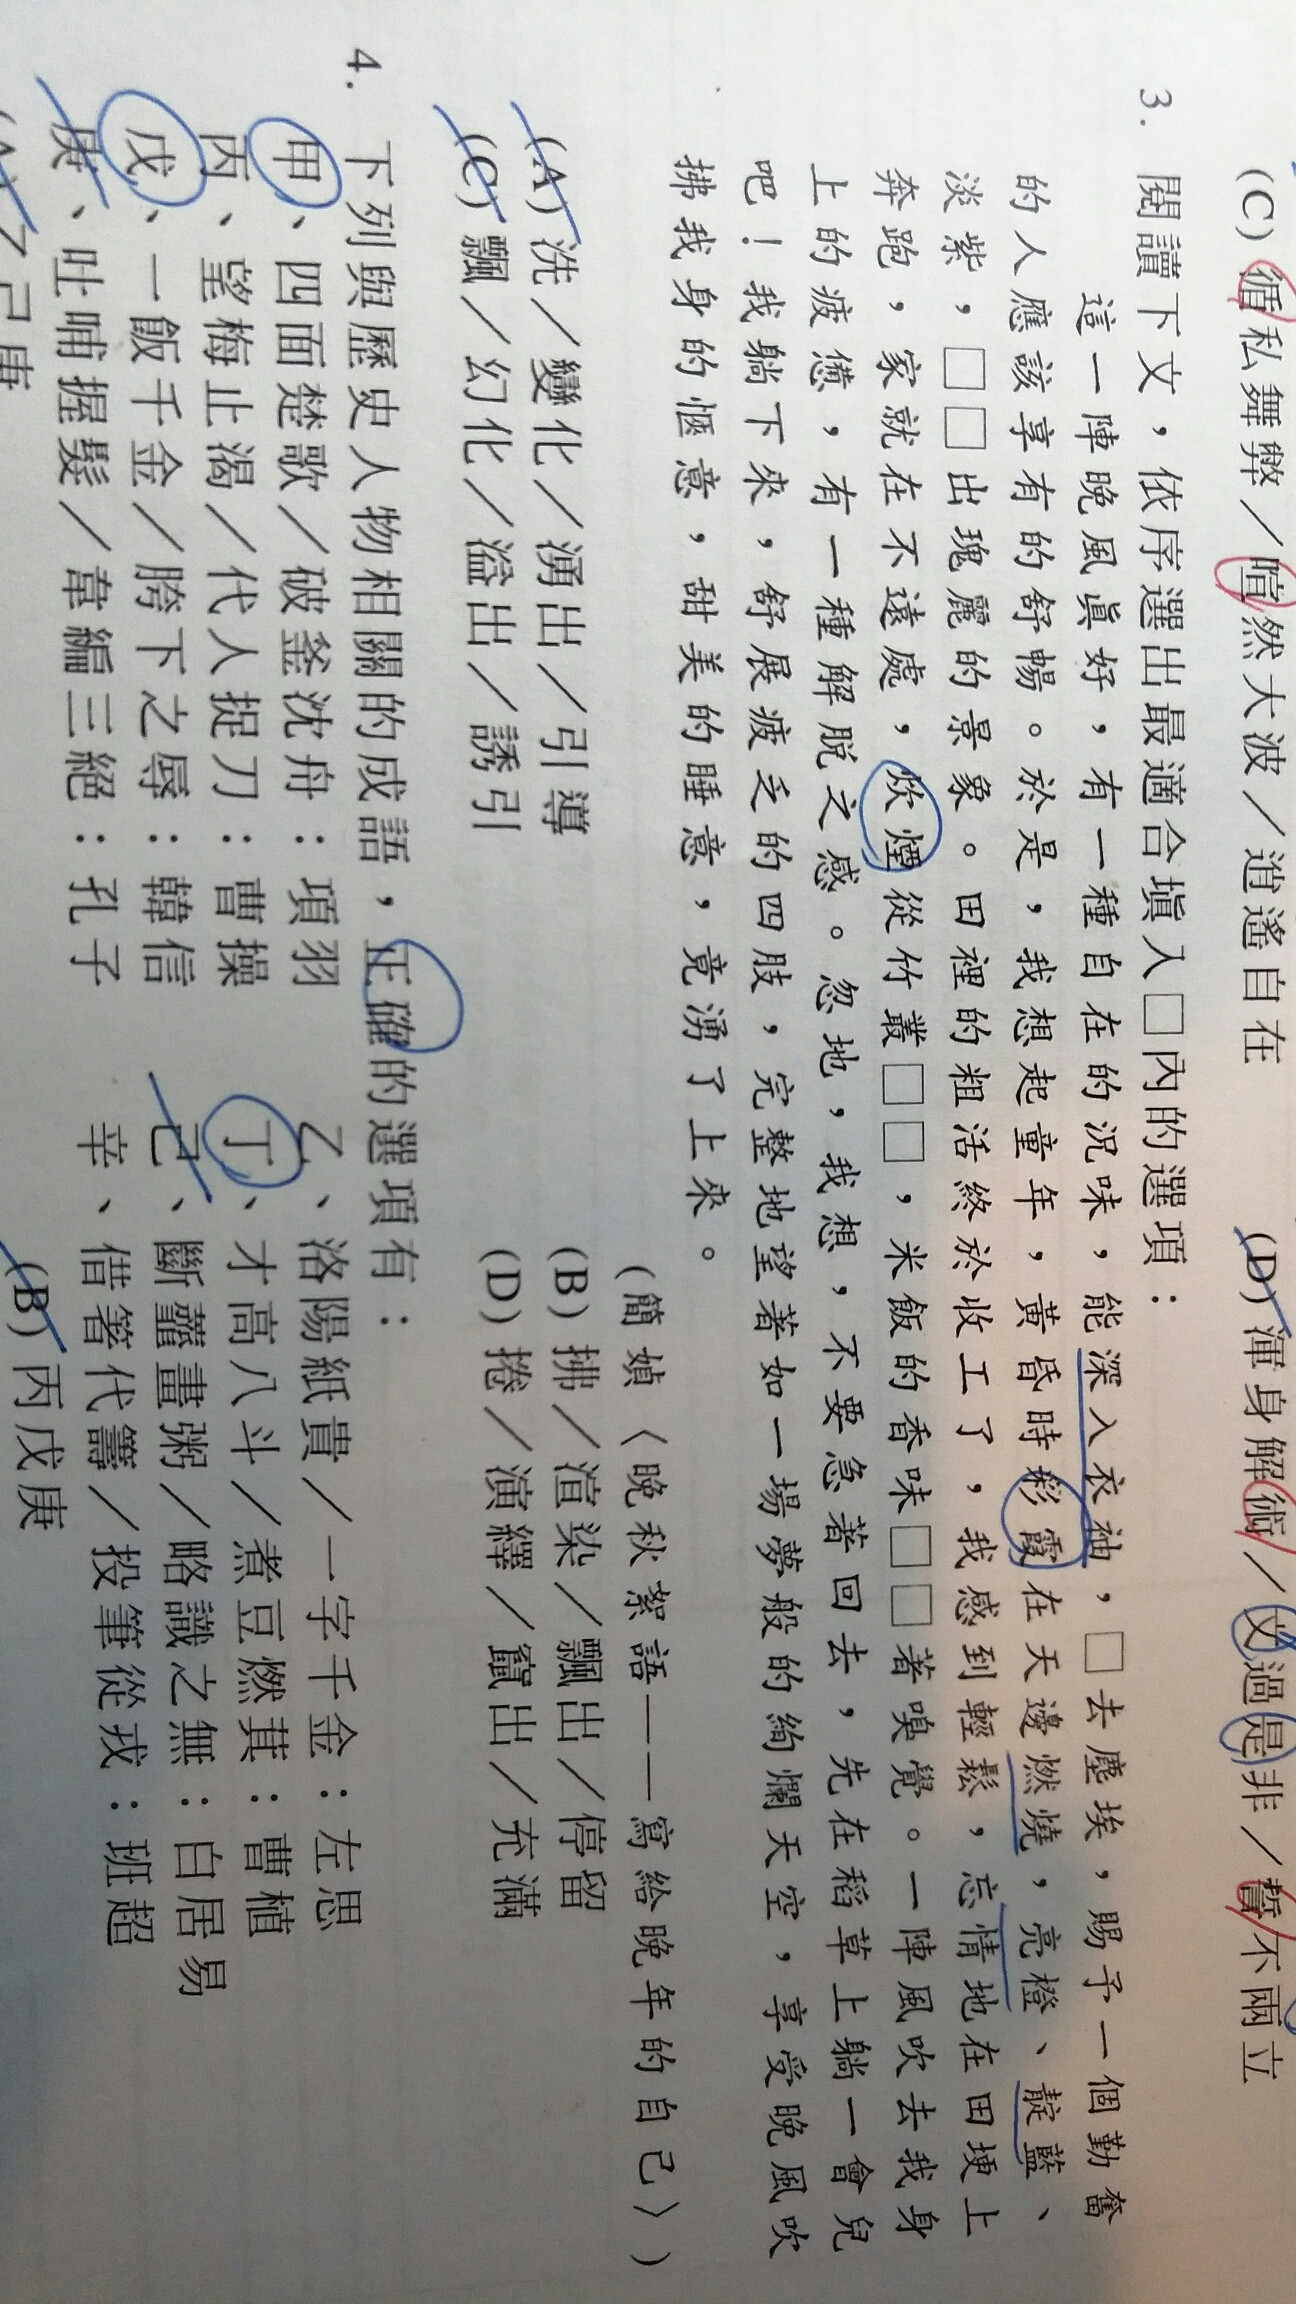 (C)循私舞弊／喧然大波／逍遙自在
(D)渾身解術／文過是非／誓不兩立
3. 閱讀下文，依序選出最適合填入□內的選項：
這一陣晚風真好，有一種自在的況味，能深入衣袖，□去塵埃，賜予一個勤奮
的人應該享有的舒暢。於是，我想起童年，黃昏時彩霞在天邊燃燒，亮橙、靛藍、
淡紫，□□出瑰麗的景象。田裡的粗活終於收工了，我感到輕鬆，忘情地在田埂上
奔跑，家就在不遠處，炊煙從竹叢□□，米飯的香味□□著嗅覺。一陣風吹去我身
上的疲憊，有一種解脫之感。忽地，我想，不要急著回去，先在稻草上躺一會兒
吧！我躺下來，舒展疲乏的四肢，完整地望著如一場夢般的絢爛天空，享受晚風吹
拂我身的愜意，甜美的睡意，竟湧了上來。
(簡媜〈晚秋絮語——寫給晚年的自己〉)
(A)洗／變化／湧出／引導
(B)拂／渲染／飄出／停留
(C)飄／幻化／溢出／誘引
(D)捲／演繹／竄出／充滿
4. 下列與歷史人物相關的成語，正確的選項有：
甲、四面楚歌／破釜沈舟：項羽
乙、洛陽紙貴／一字千金：左思
丙、望梅止渴／代人捉刀：曹操
丁、才高八斗／煮豆燃萁：曹植
戊、一飯千金／胯下之辱：韓信
己、斷虀畫粥／略識之無：白居易
庚、吐哺握髮／韋編三絕：孔子
辛、借箸代籌／投筆從戎：班超
(A)乙己庚
(B)丙戊庚